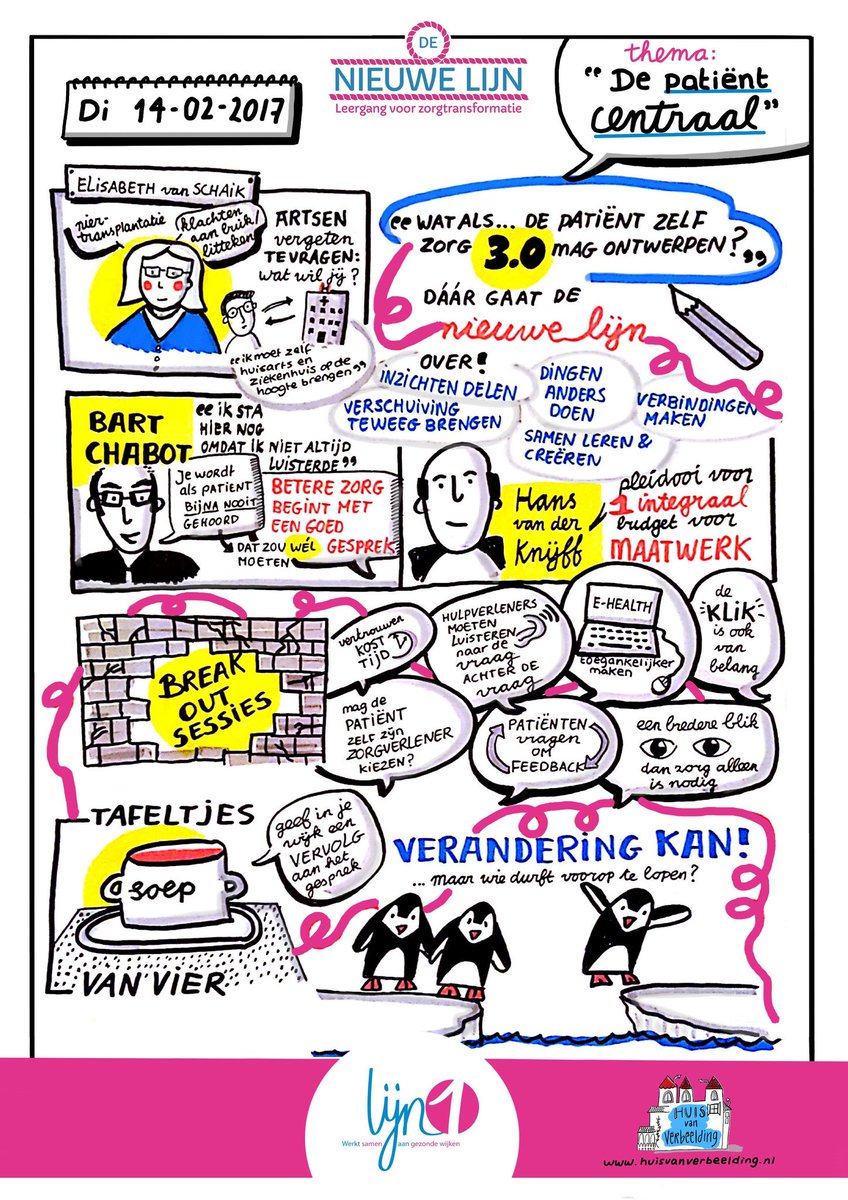 DE
NIEUWE LIJN
Leergang voor zorgtransformatie
Di 14-02-2017
thema:
"De patiënt
centraal"
ELISABETH van SCHAiK
nier-
transplantatie
klachten
aan buik/
litteken
ARTSEN
vergeten
TE VRAGEN:
wat wil jij?
H
"ik moet zelf
huisarts en
ziekenhuis op de
hoogte brengen"
"WAT ALS... DE PATIËNT ZELF
ZORG 3.0 MAG ONTWERPEN?"
DÁÁR GAAT DE
nieuwe lijn
OVER!
INZICHTEN DELEN
DINGEN
ANDERS
DOEN
VERBINDINGEN
MAKEN
VERSCHUIVING
TEWEEG BRENGEN
SAMEN LEREN &
CREËREN
BART
CHABOT
"IK STA
HIER NOG
OMDAT IK NIET ALTIJD
LUISTERDE"
Je wordt
als PATIENT
BIJNA NOOIT
GEHOORD
DAT ZOU WÉL
MOETEN
BETERE ZORG
BEGINT MET
EEN GOED
GESPREK
Hans
van der
Knijff
pleidooi voor
1 integraal
budget voor
MAATWERK
BREAK
OUT
SESSIES
vertrouwen
KOST
TIJD
HULPVERLENERS
MOETEN
LUISTEREN
naar de
vraag
ACHTER DE
vraag
E-HEALTH
toegankelijker
maken
de
KLIK
is ook
van
belang
mag de
PATIËNT
ZELF zijn
ZORGVERLENER
KIEZEN?
PATIËNTEN
vragen
OM
FEEDBACK
een bredere blik
dan zorg alleen
is nodig
TAFELTJES
soep
VAN VIER
geef in je
wijk een
VERVOLG
aan het
gesprek
VERANDERING KAN!
... maar wie durft voorop te lopen?
lijn1
Werkt samen aan gezonde wijken
HUIS
van
Verbeelding
www.huisvanverbeelding.nl